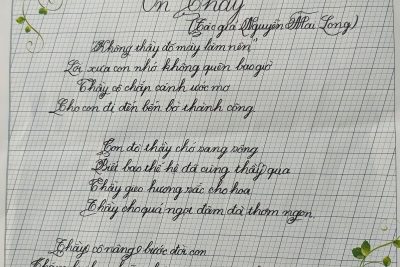 Ơn Thầy
(Tác giả Nguyễn Mai Long)
"Không thầy đố mày làm nên"
Lời xưa con nhớ không quên bao giờ
Thầy cô chắp cánh ước mơ
Cho con đi đến bến bờ thành công.
Con đò thầy chở sang sông
Biết bao thế hệ đã cùng thầy qua
Thầy gieo hương sắc cho hoa
Thầy cho quả ngọt đậm đà thơm ngon.
Thầy cô nâng bước đời con